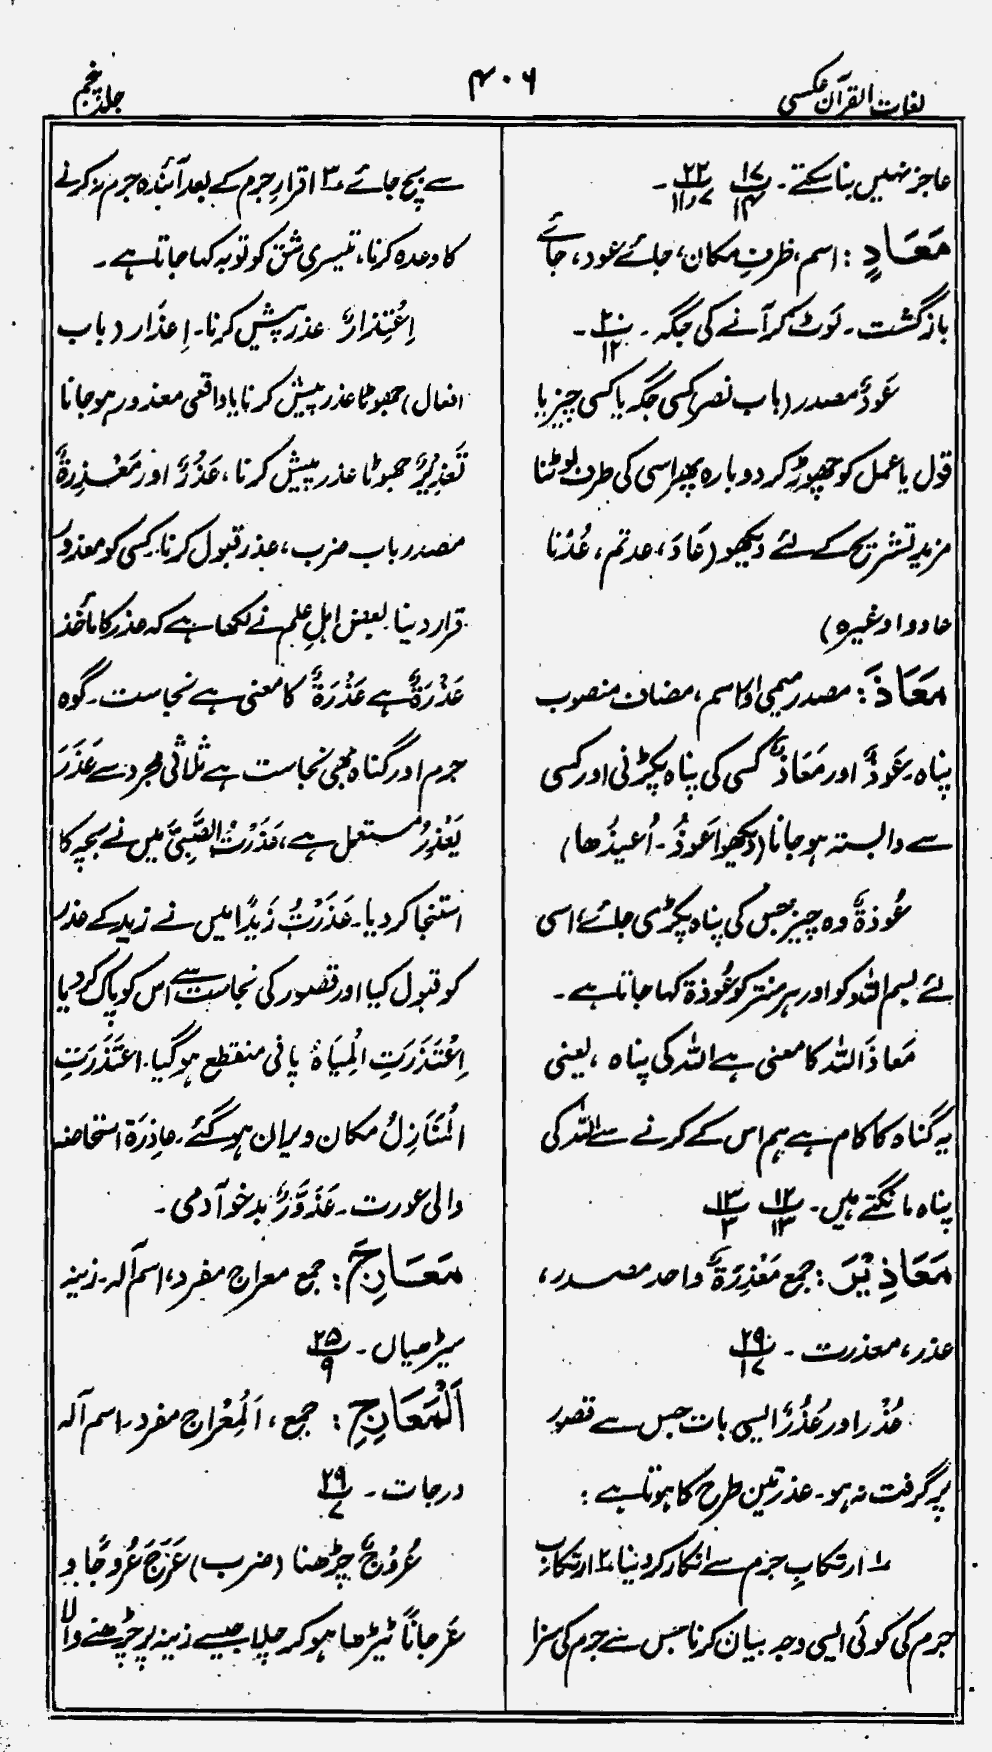 لغات القرآن عکسی
۴۰۶
جلد پنجم
عاجز نہیں بنا سکتے۔ پ ۱۷/۱۴ پ ۲۲/۱۱،۷۔
مَعَادٍ: اسم، ظرفِ مکان، جائے عود، جائے
بازگشت۔ لَوٹ کر آنے کی جگہ۔ پ ۲۰/۱۲۔
عَودٌ مصدر (باب نصر) کسی جگہ یا کسی چیز یا
قول یا عمل کو چھوڑ کر دوبارہ پھر اسی کی طرف لوٹنا
مزید تشریح کے لئے دیکھو (عَادَ، عدتم، عُدْنا
عادوا وغیرہ)
مَعَاذَ: مصدر میمی اور اسم، مضاف منصوب
پناہ۔ عَوذٌ اور مَعَاذٌ کسی کی پناہ پکڑنی اور کسی
سے وابستہ ہو جانا (دیکھو اَعوذُ۔ اُعیذُھا)
عُوذۃٌ وہ چیز جس کی پناہ پکڑی جائے اسی
لئے بسم اللہ کو اور ہر منتر کو عُوذۃ کہا جاتا ہے۔
مَعاذَ اللہ کا معنی ہے اللہ کی پناہ، یعنی
یہ گناہ کا کام ہے ہم اس کے کرنے سے اللہ کی
پناہ مانگتے ہیں۔ پ ۱۲/۱۳ پ ۱۳/۳
مَعَاذِیْرَ: جمع مَعْذِرَۃٌ واحد مصدر،
عذر، معذرت۔ پ ۲۹/۱۷
عُذْر اور عُذُرٌ ایسی بات جس سے قصور
پر گرفت نہ ہو۔ عذر تین طرح کا ہوتا ہے:
۱؎ ارتکابِ جرم سے انکار کر دینا، ۲؎ ارتکاب
جرم کی کوئی ایسی وجہ بیان کرنا جس سے جرم کی سزا
سے بچ جائے ۳؎ اقرارِ جرم کے بعد آئندہ جرم نہ کرنے
کا وعدہ کرنا، تیسری شق کو توبہ کہا جاتا ہے۔
اِعْتِذارٌ عذر پیش کرنا۔ اِعذَار (باب
افعال) جھوٹا عذر پیش کرنا یا واقعی معذور ہو جانا
تَعْذِیْرٌ جھوٹا عذر پیش کرنا، عَذْرٌ اور مَعْذِرَۃٌ
مصدر باب ضرب، عذر قبول کرنا۔ کسی کو معذور
قرار دینا بعض اہلِ علم نے لکھا ہے کہ عذر کا مأخذ
عَذْرَۃٌ ہے عَذْرَۃٌ کا معنی ہے نجاست۔ گوہ
جرم اور گناہ بھی نجاست ہے ثلاثی مجرد سے عَذَرَ
یَعْذِرُ مستعمل ہے، عَذَرْتُ الصَّبِیَّ میں نے بچہ کا
استنجا کر دیا۔ عَذَرْتُ زَیْدًا میں نے زید کے عذر
کو قبول کیا اور قصور کی نجاست سے اس کو پاک کر دیا
اِعْتَذَرَتِ الْمِیَاہُ پانی منقطع ہو گیا۔ اعتَذَرَتِ
الْمَنَازِلُ مکان ویران ہو گئے۔ عاذِرَۃ استحاضہ
والی عورت۔ عَذَوَّرٌ بدخو آدمی۔
مَعَارِجَ: جمع معراج مفرد، اسم آلہ۔ زینہ
سیڑھیاں۔ پ ۲۵/۹
اَلْمَعَارِجِ: جمع، اَلْمِعْراج مفرد۔ اسم آلہ
درجات۔ پ ۲۹/۷
عُروجٌ چڑھنا (ضرب) عَرَجَ عُروجًا و
عَرجاناً ٹیڑھا ہو کر چلا جیسے زینہ پر چڑھنے والا